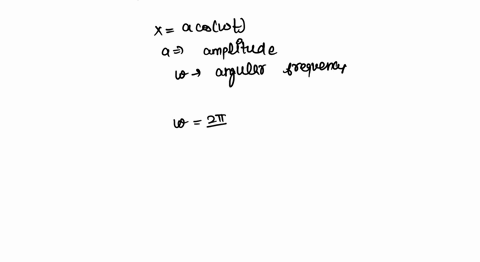 x = a cos(ωt)
a ⇒ amplitude
ω → anguler frequency
ω = 2π